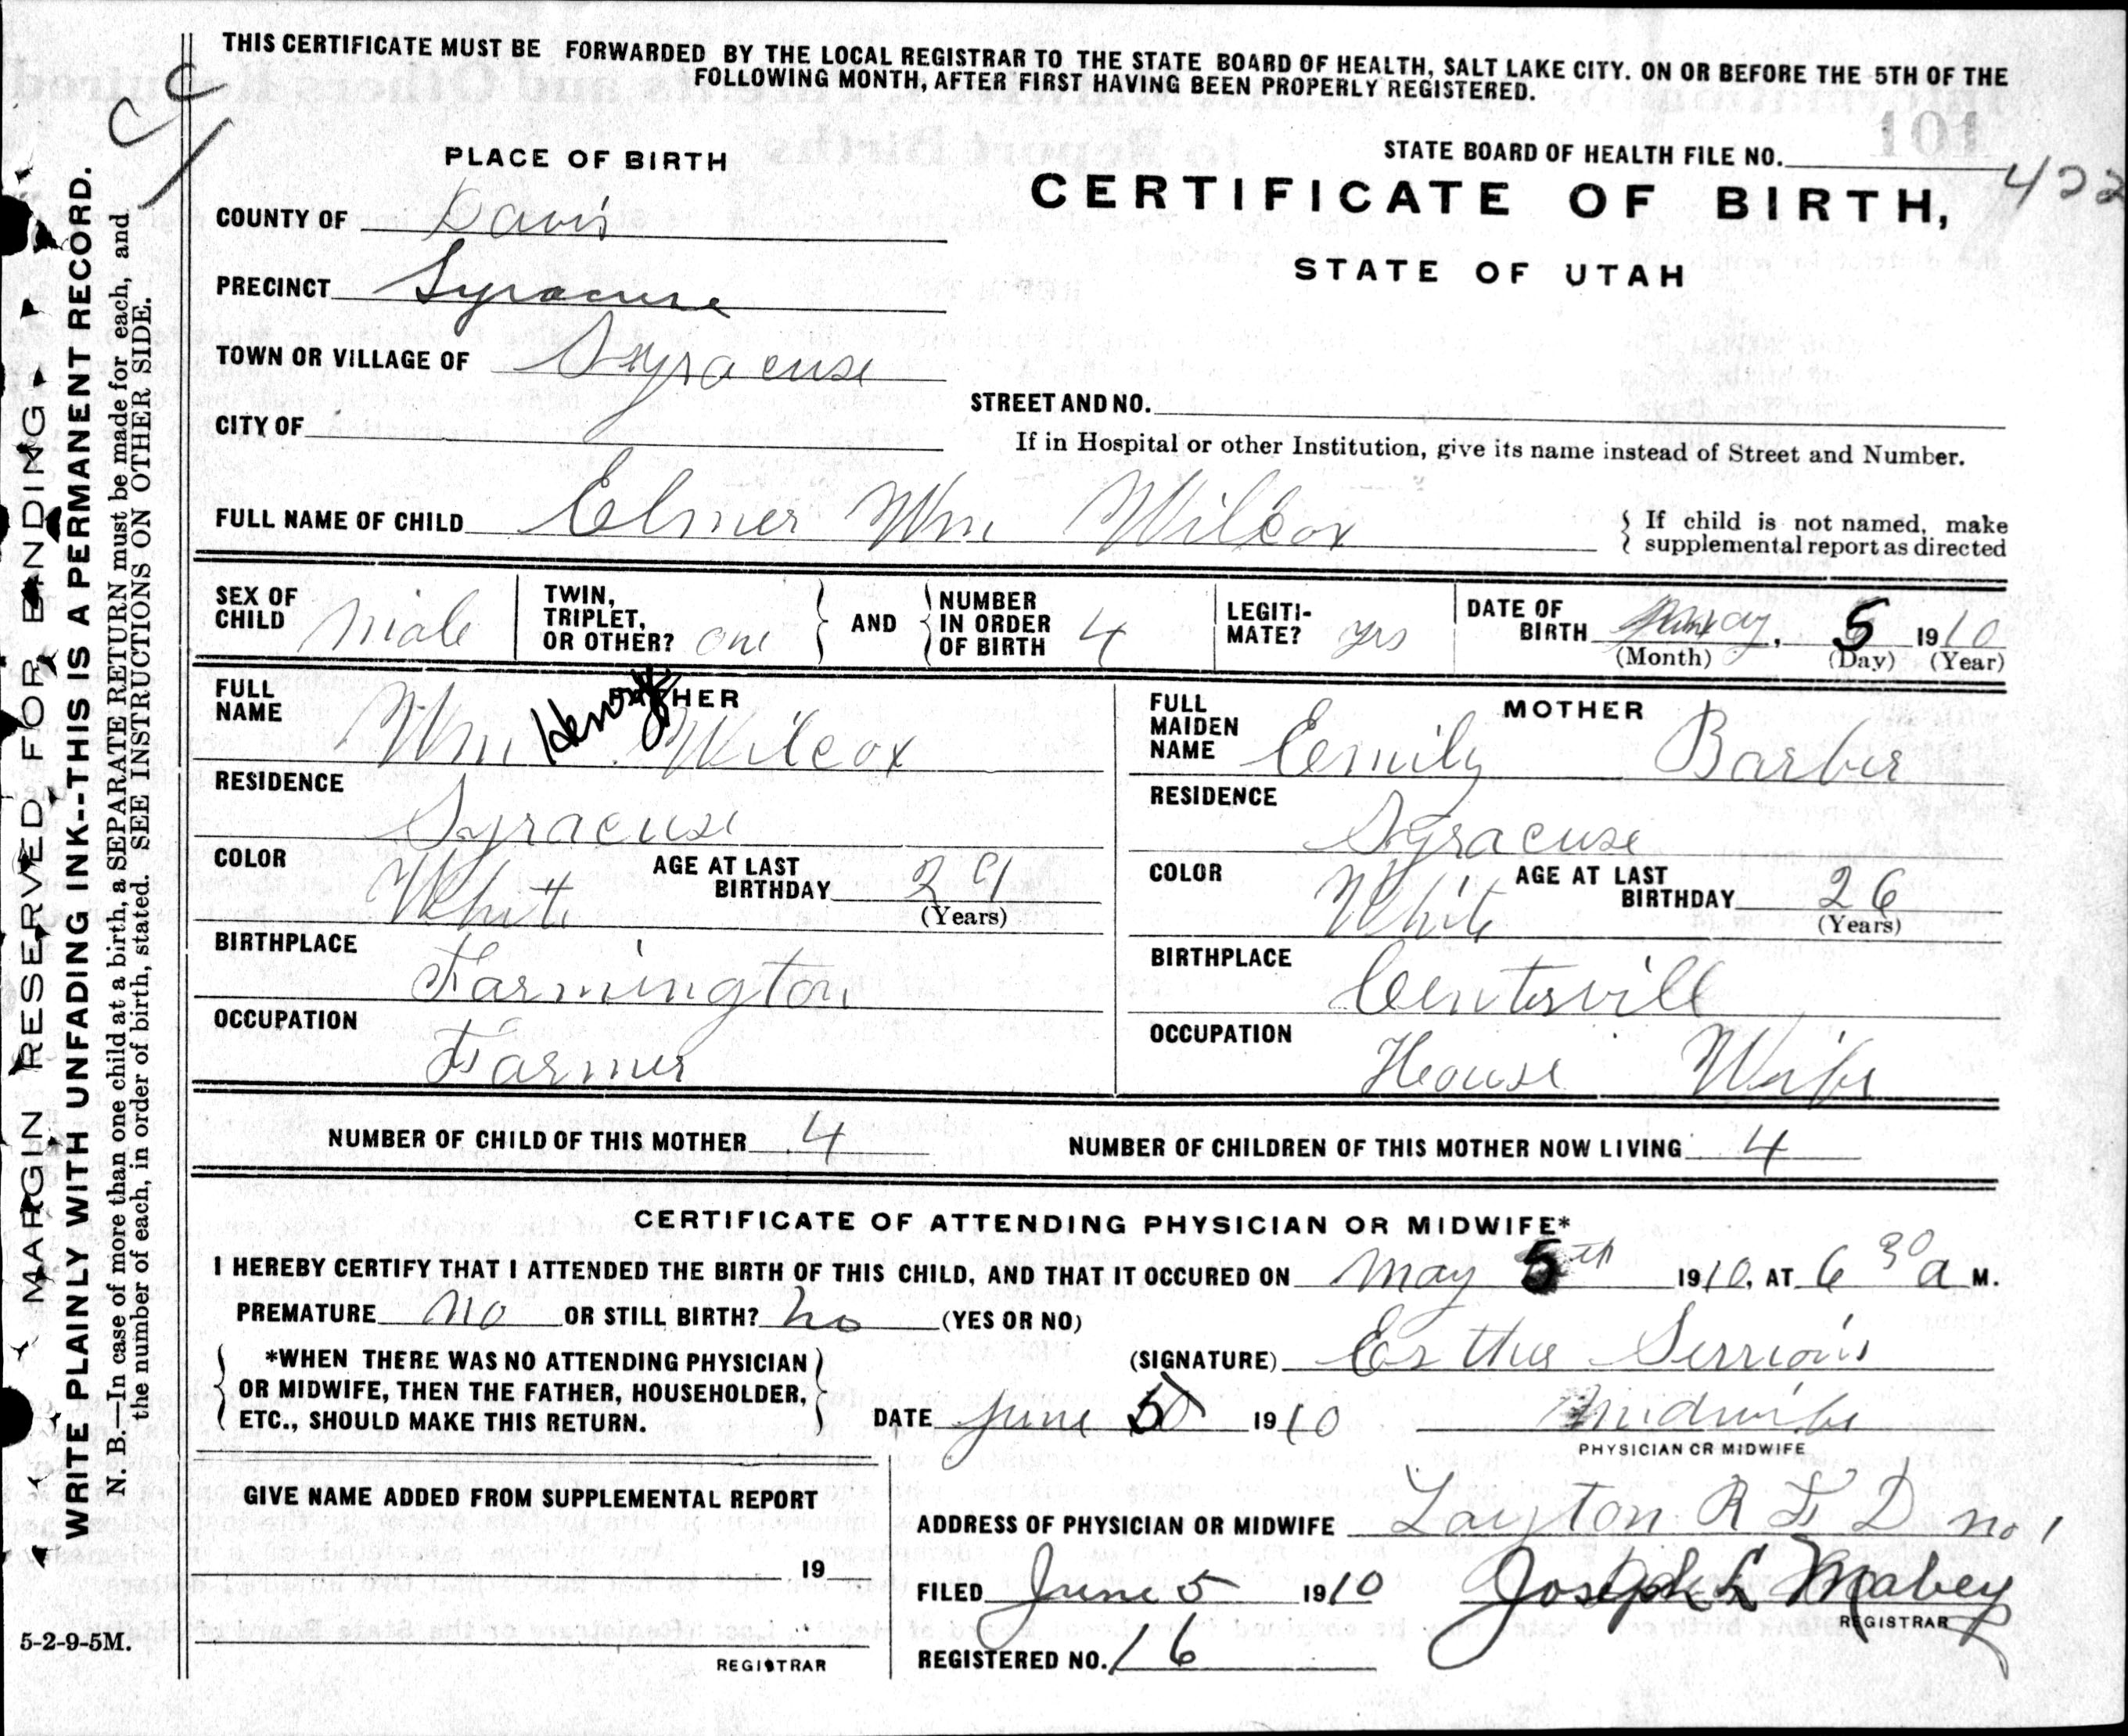 THIS CERTIFICATE MUST BE FORWARDED BY THE LOCAL REGISTRAR TO THE STATE BOARD OF HEALTH, SALT LAKE CITY. ON OR BEFORE THE 5TH OF THE
FOLLOWING MONTH, AFTER FIRST HAVING BEEN PROPERLY REGISTERED.
MARGIN RESERVED FOR BINDING
WRITE PLAINLY WITH UNFADING INK--THIS IS A PERMANENT RECORD.
N. B.—In case of more than one child at a birth, a SEPARATE RETURN must be made for each, and
the number of each, in order of birth, stated. SEE INSTRUCTIONS ON OTHER SIDE.
101
PLACE OF BIRTH
STATE BOARD OF HEALTH FILE NO. 422
CERTIFICATE OF BIRTH,
STATE OF UTAH
COUNTY OF Davis
PRECINCT Syracuse
TOWN OR VILLAGE OF Syracuse
STREET AND NO.
CITY OF
If in Hospital or other Institution, give its name instead of Street and Number.
FULL NAME OF CHILD Elmer Wm Wilcox
If child is not named, make
supplemental report as directed
SEX OF CHILD Male
TWIN, TRIPLET, OR OTHER? one
AND
NUMBER IN ORDER OF BIRTH 4
LEGITI- MATE? yes
DATE OF BIRTH May, 5 1910
(Month) (Day) (Year)
FATHER
FULL NAME Wm Henry Wilcox
RESIDENCE Syracuse
COLOR White AGE AT LAST BIRTHDAY 29
(Years)
BIRTHPLACE Farmington
OCCUPATION Farmer
MOTHER
FULL MAIDEN NAME Emily Barber
RESIDENCE Syracuse
COLOR White AGE AT LAST BIRTHDAY 26
(Years)
BIRTHPLACE Centervill
OCCUPATION House Wife
NUMBER OF CHILD OF THIS MOTHER 4 NUMBER OF CHILDREN OF THIS MOTHER NOW LIVING 4
CERTIFICATE OF ATTENDING PHYSICIAN OR MIDWIFE*
I HEREBY CERTIFY THAT I ATTENDED THE BIRTH OF THIS CHILD, AND THAT IT OCCURED ON May 5th 1910, AT 6 30 a M.
PREMATURE no OR STILL BIRTH? no (YES OR NO)
*WHEN THERE WAS NO ATTENDING PHYSICIAN
OR MIDWIFE, THEN THE FATHER, HOUSEHOLDER,
ETC., SHOULD MAKE THIS RETURN.
(SIGNATURE)
DATE June 5 1910 Midwife
PHYSICIAN OR MIDWIFE
GIVE NAME ADDED FROM SUPPLEMENTAL REPORT
19
REGISTRAR
ADDRESS OF PHYSICIAN OR MIDWIFE Layton R F D no 1
FILED June 5 1910 Joseph L Mabey
REGISTRAR
REGISTERED NO. 16
5-2-9-5M.